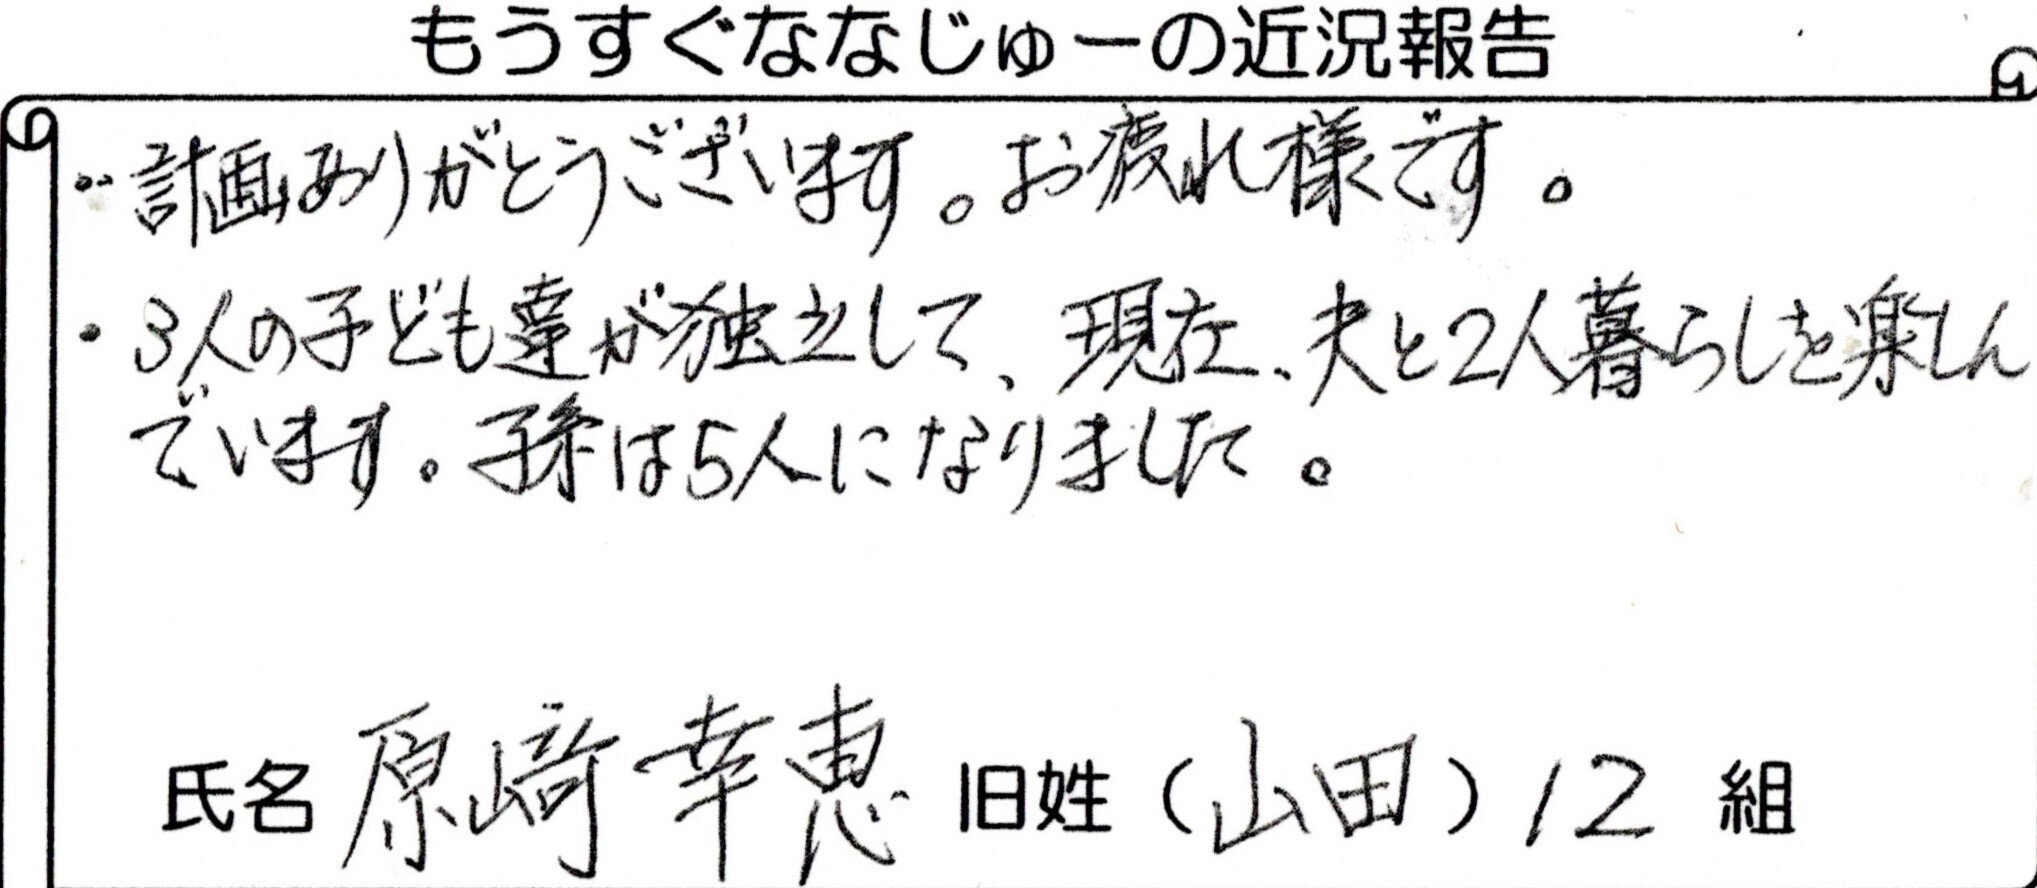 もうすぐななじゅーの近況報告
・計画ありがとうございます。お疲れ様です。
・3人の子ども達が独立して、現在、夫と2人暮らしを楽しん
でいます。孫は5人になりました。
氏名 原崎幸恵 旧姓(山田)12組